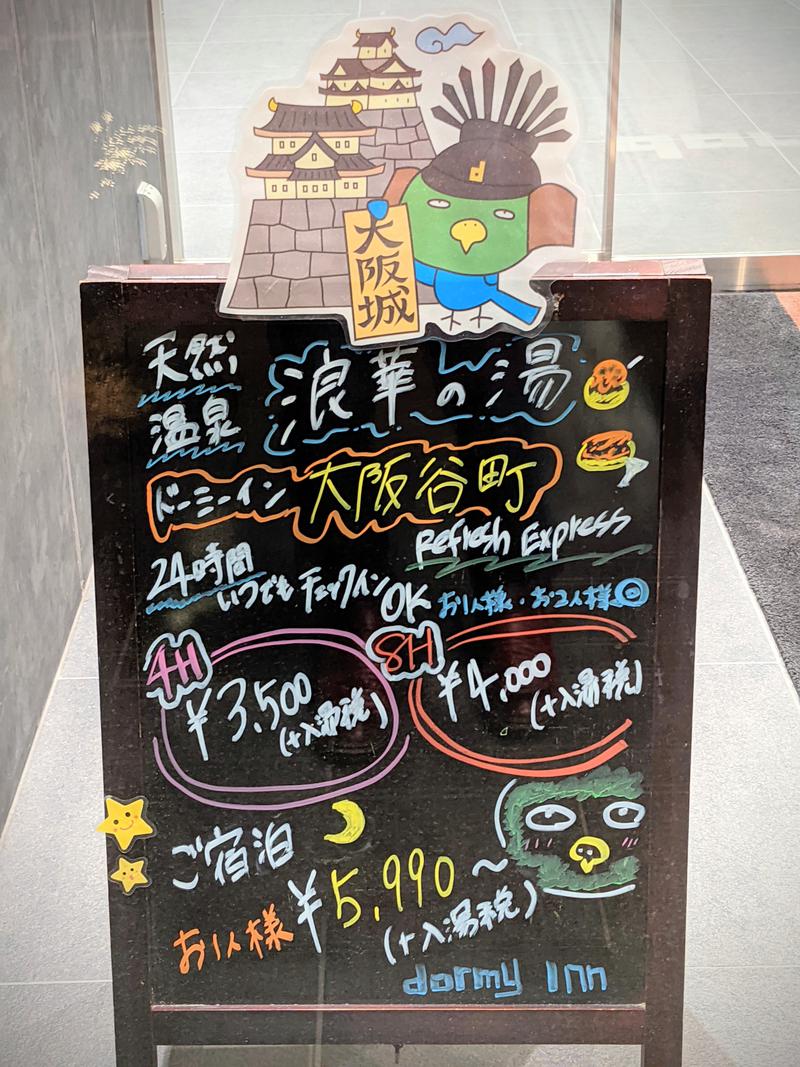 d
大阪城
天然
温泉
浪華の湯
ドーミーイン 大阪谷町
Refresh Express
24時間
いつでもチェックインOK
お1人様・お2人様◎
4H
¥3,500
(+入湯税)
8H
¥4,000
(+入湯税)
ご宿泊
お1人様 ¥5,990～
(+入湯税)
dormy inn